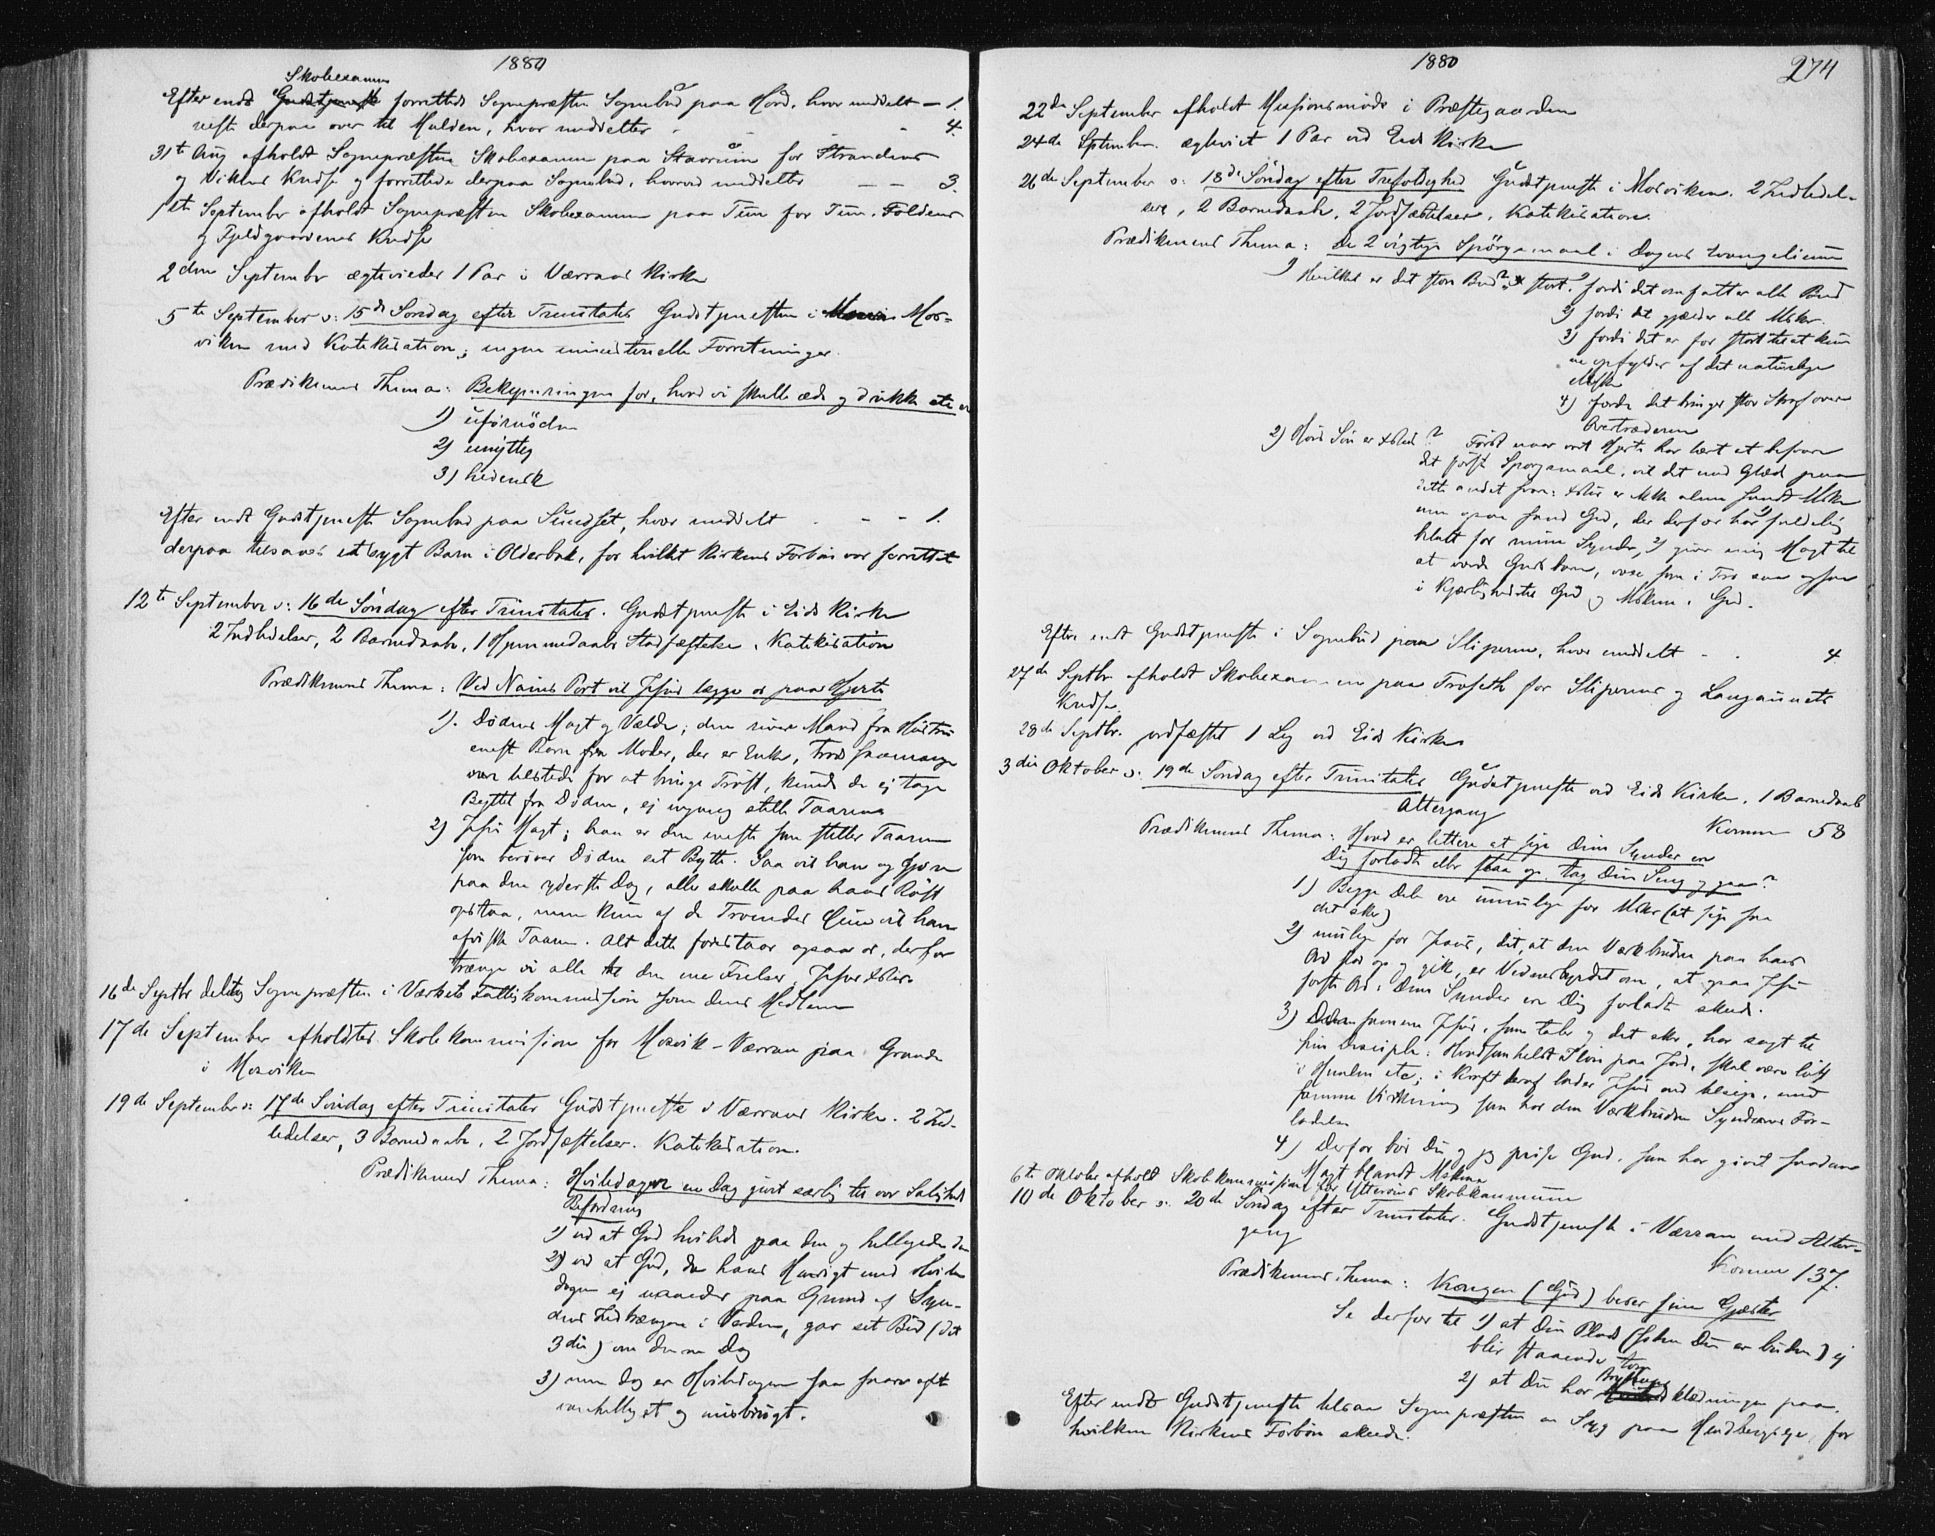 1880
Skolexamen
Efter endt Gudstjeneste forrettede Sognepræsten Sognebud paa Hörd, hvor meddelt — 1.
derpaa over til Malden, hvor meddeltes - - - 4.
31te Aug afholdt Sognepræsten Skolexamen paa Stavrum for Strandens
og Vikens Kredse og forrettede derpaa Sognebud, hvorved meddeltes — — 3.
1ste September afholdt Sognepræsten Skolexamen paa Tun for Tun, Foldens
og Fjeldgaardenes Kredse
2den September ægteviedes 1 Par i Værrans Kirke
5te September o: 15de Söndag efter Trinitatis Gudstjenesten i Mos-
viken med Katekisation; ingen ministerielle Forretninger.
Prædikenens Thema: Bekymringen for, hvad vi skulle æde og drikke etc er
1) ufornöden
2) unyttig
3) hedensk
Efter endt Gudstjeneste Sognebud paa Sundset, hvor meddelt - - - 1.
derpaa tilsaaes et sygt Barn i Olderbak, for hvilket Kirkens Forbön var forrettet
12te September o: 16de Söndag efter Trinitatis. Gudstjeneste i Eids Kirke
2 Indledelser, 2 Barnedaab, 1 Hjemmedaabs Stadfæstelse, Katekisation
Prædikenens Thema: Ved Nains Port vil Jesus lægge os paa Hjerte
1). Dödens Magt og Vælde; den river Mand fra Hustru
eneste Barn fra Moder, der er Enke, trods saamange
vare tilstede for at bringe Tröst, kunde de ej tage
Byttet fra Döden, ej engang stille Taarene
2) Jesu Magt; han er den eneste som stiller Taaren
som beröver Döden sit Bytte. Saa vil han og gjöre
paa den yderste Dag, alle skulle paa hans Röst
opstaa, men kun af de Troendes Öine vil han
aftörre Taaren. Alt dette forestaar ogsaa os, derfor
trænge vi alle til den ene Frelser, Jesus Xstus
16de Septbr deltog Sognepræsten i Værkets Fattigkommission som dens Medlem
17de September afholdtes Skolekommission for Mosvik-Værran paa Grande
i Mosviken
19de September o: 17de Söndag efter Trinitatis Gudstjeneste i Værrans Kirke. 2 Ind-
ledelser, 3 Barnedaab, 2 Jordfæstelser. Katekisation.
Prædikenens Thema: Hviledagen en Dag givet særlig til vor Saligheds
Befordring
1) ved at Gud hvilede paa den og helligede den
2) ved at Gud, da hans Hensigt med Hvile-
dagen ej naaedes paa Grund af Syn-
dens Indtrængen i Verden, gav sit Bud (det
3die) om denne Dag
3) men dog er Hviledagen saa saare ofte
vanhelliget og misbrugt.
1880
274
22de September afholdt Missionsmöde i Præstegaarden
24de September. ægteviet 1 Par ved Eids Kirke
26de September o: 18de Söndag efter Trefoldighed Gudstjeneste i Mosviken. 2 Indledel-
ser, 2 Barnedaab, 2 Jordfæstelser, Katekisation.
Prædikenens Thema: De 2 vigtige Spörgsmaal i Dagens Evangelium
1) Hvilket er det store Bud? stort. 1) fordi det omfatter alle Bud
2) fordi det gjælder alle Msker.
3) fordi det er for stort til at kun-
ne opfyldes af det naturlige
Mske
4) fordi det bringer stor Straf over
Overtræderen
2) Hvis Sön er Xstus? Först naar vort Hjerte har lært at besvare
det förste Spörgsmaal, vil det med Glæde paa
dette andet svare: Xstus er ikke alene sand Mske
men ogsaa sand Gud, der derfor 1) har fuldelig
betalt for mine Synder, 2) giver mig Magt til
at vorde Guds Barn, voxe som i Tro saa ogsaa
i Kjærlighed til Gud og Msken i Gud.
Efter endt Gudstjeneste i Sognebud paa Sliperen, hvor meddelt - - 4
27de Septbr afholdt Skolexamen paa Troseth for Sliperens og Langaunets
Kredse.
28de Septbr. jordfæstet 1 Lig ved Eids Kirke
3die Oktober o: 19de Söndag efter Trinitatis Gudstjeneste ved Eids Kirke. 1 Barnedaab
Altergang Komm 58
Prædikenens Thema: Hvad er lettere at sige Dine Synder ere
Dig forladte eller staa op, tag Din Seng og gaa?
1) Begge Dele ere umulige for Msker (at sige saa
det sker)
2) mulige for Jesus, dit, at den Værkbrudne paa hans
Ord stod op og gik, er Vidnesbyrdet om, at ogsaa Jesu
förste Ord: Dine Synder ere Dig forladte skede.
3) Den samme Jesus, som taler og det sker, har sagt til
sine Disciple: Hvadsomhelst I löse paa Jord, skal være löst
i Himlen etc; i Kraft heraf lader Jesus end tilsige, med
samme Virkning som hos den Værkbrudne Syndernes For-
ladelse
4) Derfor bör Du og jeg prise Gud, som har givet saadan
Magt blandt Mskene
6te Oktober afholdt Skolekommission for Ytteröens Skolekommune
10de Oktober o: 20de Söndag efter Trinitatis. Gudstjeneste i Værran med Alter-
gang
Komm 137.
Prædikenens Thema: Kongen (Gud) beser sine Gjæster
Se derfor til 1) at Din Plads (siden Du er buden) ej
blir staaende tom
2) at Du har Bryllups klædningen paa.
Efter endt Gudstjeneste tilsaa Sognepræsten en Syg paa Hendbergseje, for
hvilken Kirkens Forbön skede.